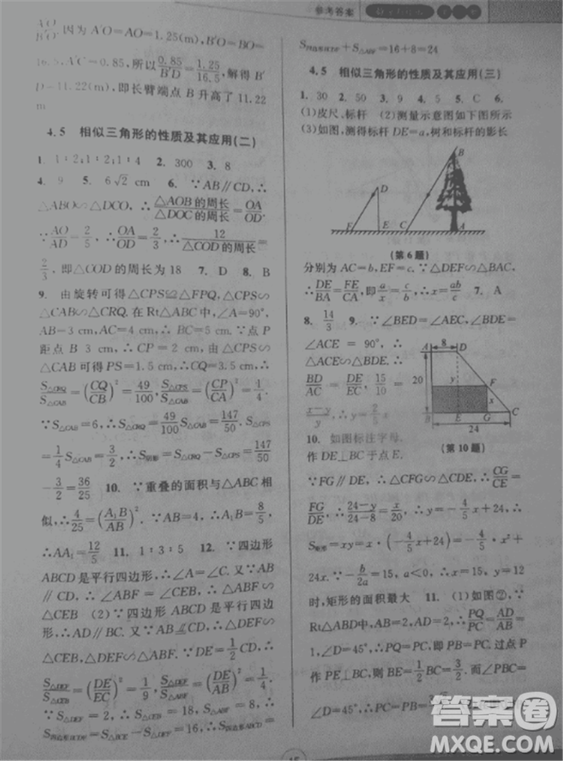 参考答案
A′O/AO, 因为 A′O=AO=1.25(m), B′O=BO=
16.5, A′C=0.85, 所以 0.85/B′D=1.25/16.5, 解得 B′
D=11.22(m), 即长臂端点 B 升高了 11.22
(m)
4.5 相似三角形的性质及其应用(二)
1. 1∶2;1∶2;1∶4 2. 300 3. 8
4. 9 5. 6√2 cm 6. ∵AB∥CD,∴
△ABO∽△DCO, ∴△AOB的周长/△DOC的周长=OA/OD.
∵AO/AD=2/5, ∴OA/OD=2/3, ∴12/△COD的周长=
2/3, 即△COD 的周长为 18 7. D 8. B
9. 由旋转可得△CPS≌△FPQ, △CPS∽
△CAB. 在 Rt△ABC 中, ∵∠A=90°,
AB=3 cm, AC=4 cm, ∴BC=5 cm. ∵点 P
距点 B 3 cm, ∴CP=2 cm. 由△CPS∽
△CAB 可得 PS=1.5 cm, ∴CQ=3.5 cm, ∴
S△CRQ/S△CAB=(CQ/CB)²=49/100, S△CPS/S△CAB=(CP/CA)²=1/4.
∵S△CAB=6, ∴S△CRQ=49/100 S△CAB=147/50, S△CPS=
1/4 S△CAB=3/2, ∴S=S△CRQ−S△CPS=147/50
−3/2=36/25 10. ∵重叠的面积与△ABC相
似, ∴4/25=(A₁B/AB)². ∵AB=4, ∴A₁B=8/5,
∴AA₁=12/5 11. 1∶3∶5 12. ∵四边形
ABCD 是平行四边形, ∴∠A=∠C. 又∵
∴∠ABF=∠CEB, ∴△ABF∽
△CEB (2)∵四边形 ABCD 是平行四边
形, ∴AD∥BC
CEB, △DEF∽△ABF. ∵DE=1/2 CD, ∴
S△DEF/S△CEB=(DE/EC)²=1/9, S△DEF/S△ABF=(DE/AB)²=1/4.
∵S△DEF=2, ∴S△CEB=18, S△ABF=8, ∴
+S△ABF=16+8=24
4.5 相似三角形的性质及其应用(三)
1. 30 2. 50 3. 9 4. A 5. C 6.
(1)皮尺,标杆 (2)测量示意图如下图所示
(3)如图,测得标杆 DE=a, 树和标杆的影长
B
D
E F C A
(第 6 题)
分别为 AC=b, EF=c. ∵△DEF∽△BAC,
∴DE/BA=FE/CA, 即a/x=c/b, ∴x=ab/c 7. A
8. 14/3 9. ∵∠BED=∠AEC, ∠BDE=
∠ACE = 90°, ∴
△ACE∽△BDE, ∴
BD/AC=DE/CE, ∴15/20=10/x
A 8 D
20
y F
x
B E G C
24
(第 10 题)
10. 如图标注字母.
作 DE⊥BC 于点 E.
∵FG∥DE, ∴△CFG∽△CDE, ∴CG/CE=
FG/DE, ∴(24−y)/(24−8)=x/20, ∴y=−4/5x+24, ∴
S矩形=xy=x·(−4/5x+24)=−4/5x²+
24x. ∵−b/2a=15, a<0, ∴当 x=15, y=12
时, 矩形的面积最大 11. (1)如图②, ∵
Rt△ABD 中, ∠D=45°, ∴tan∠D=PQ/PC=AB/AD=
1, ∠D=45°, ∴PQ=PC, 即 PB=PC. 过点 P
作 PE⊥BC, 则 BE=1/2 BC=4/3. ∵∠PBC=
∠D=45°, ∴PC=PB=
15
答案圈
MXQE.COM